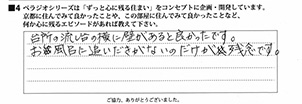 ■4 ベラジオシリーズは「ずっと心に残る住まい」をコンセプトに企画・開発しています。
京都に住んでみて良かったことや、この部屋に住んでみて良かったことなど、
何か心に残るエピソードがあれば教えて下さい。
台所の流し台の横に壁があると良かったです。
お風呂に追いだきがないのだけが残念です。
ご協力、ありがとうございました。